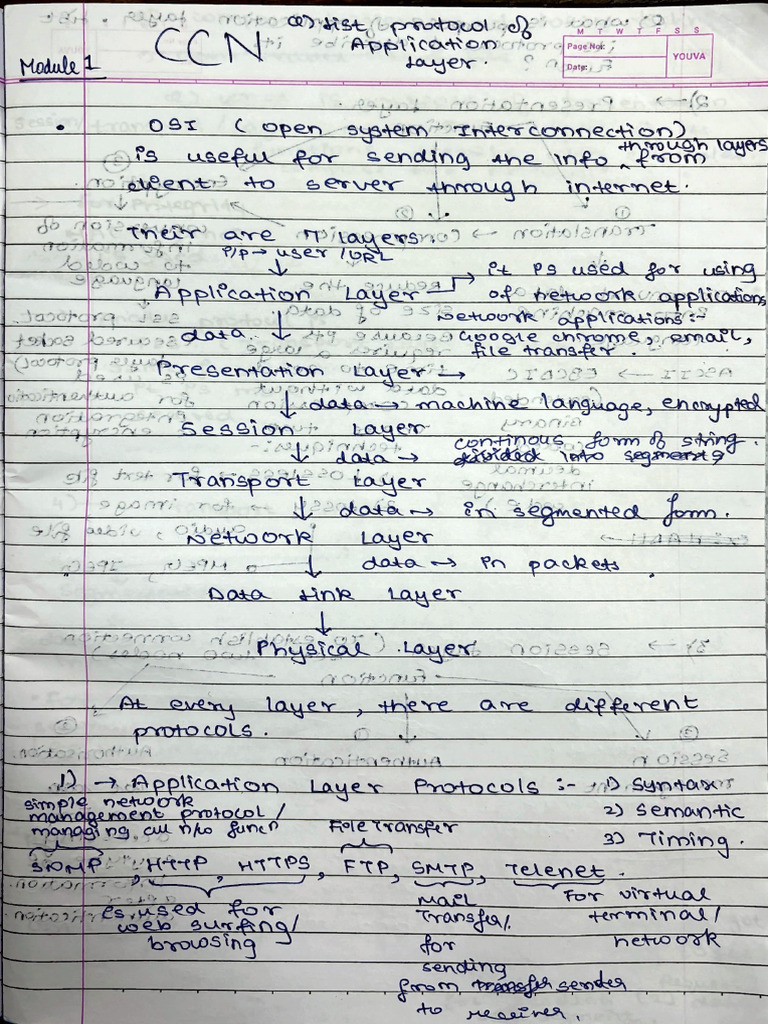 Q) List protocol of
Application
Layer.
CCN
Module 1
M T W T F S S
Page No.:
Date:
YOUVA
• OSI (open system Interconnection)
is useful for sending the info through layers from
client to server through internet.
Their are 7 layers
I/P → user / URL
↓
Application Layer → it is used for using
of network applications
Network applications:-
data ↓ Google chrome, email,
file transfer.
Presentation Layer →
↓ data → machine language, encrypted
Session Layer
continous form of string.
↓ data → divided into segments
Transport Layer
↓ data → in segmented form.
Network Layer
↓ data → in packets
Data Link Layer
↓
Physical Layer
At every layer, there are different
protocols.
1) → Application Layer Protocols :- 1) Syntax
simple network
management protocol / 2) Semantic
managing all n/w funcn File Transfer 3) Timing.
SNMP, HTTP, HTTPS, FTP, SMTP, Telenet.
is used for
web surfing/
browsing
Mail
Transfer/
for
sending
from transfer sender
to receiver.
For virtual
terminal/
network